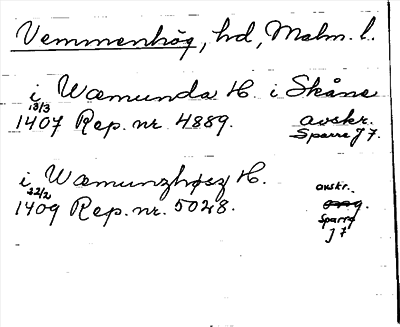 Vemmenhög, hd, Malm. l.
i Wæmunda H. i Skåne
13/3
1407 Rep. nr. 4889. avskr.
Sparre J 7.
i Wæmunzhøsz H.
22/2
1409 Rep. nr. 5028. avskr.
Sparre
J 7